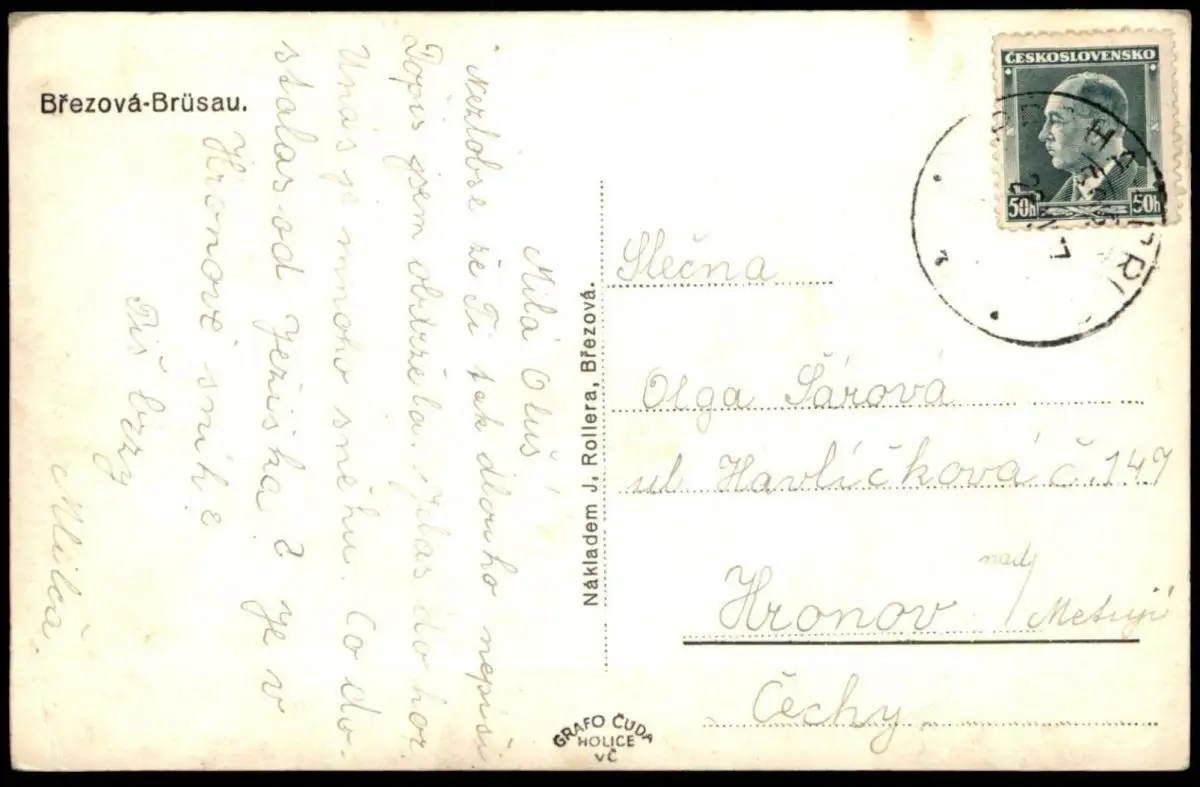 Březová-Brüsau.
Milá Oluš,
Nezlobse že Ti tak dlouho nepiši
Dopis jsem obdržela. Jelas do hor
Unás je mnoho sněhu. Co do-
stalas od Ježiška? Je v
Hronově snih?
Piš brzy
Milča.
Nákladem J. Rollera, Březová.
GRAFO ČUDA
HOLICE
VČ
ČESKOSLOVENSKO
50h 50h
Slečna
Olga Šárová
ul. Havlíčková č. 147
Hronov nad/Metují
Čechy